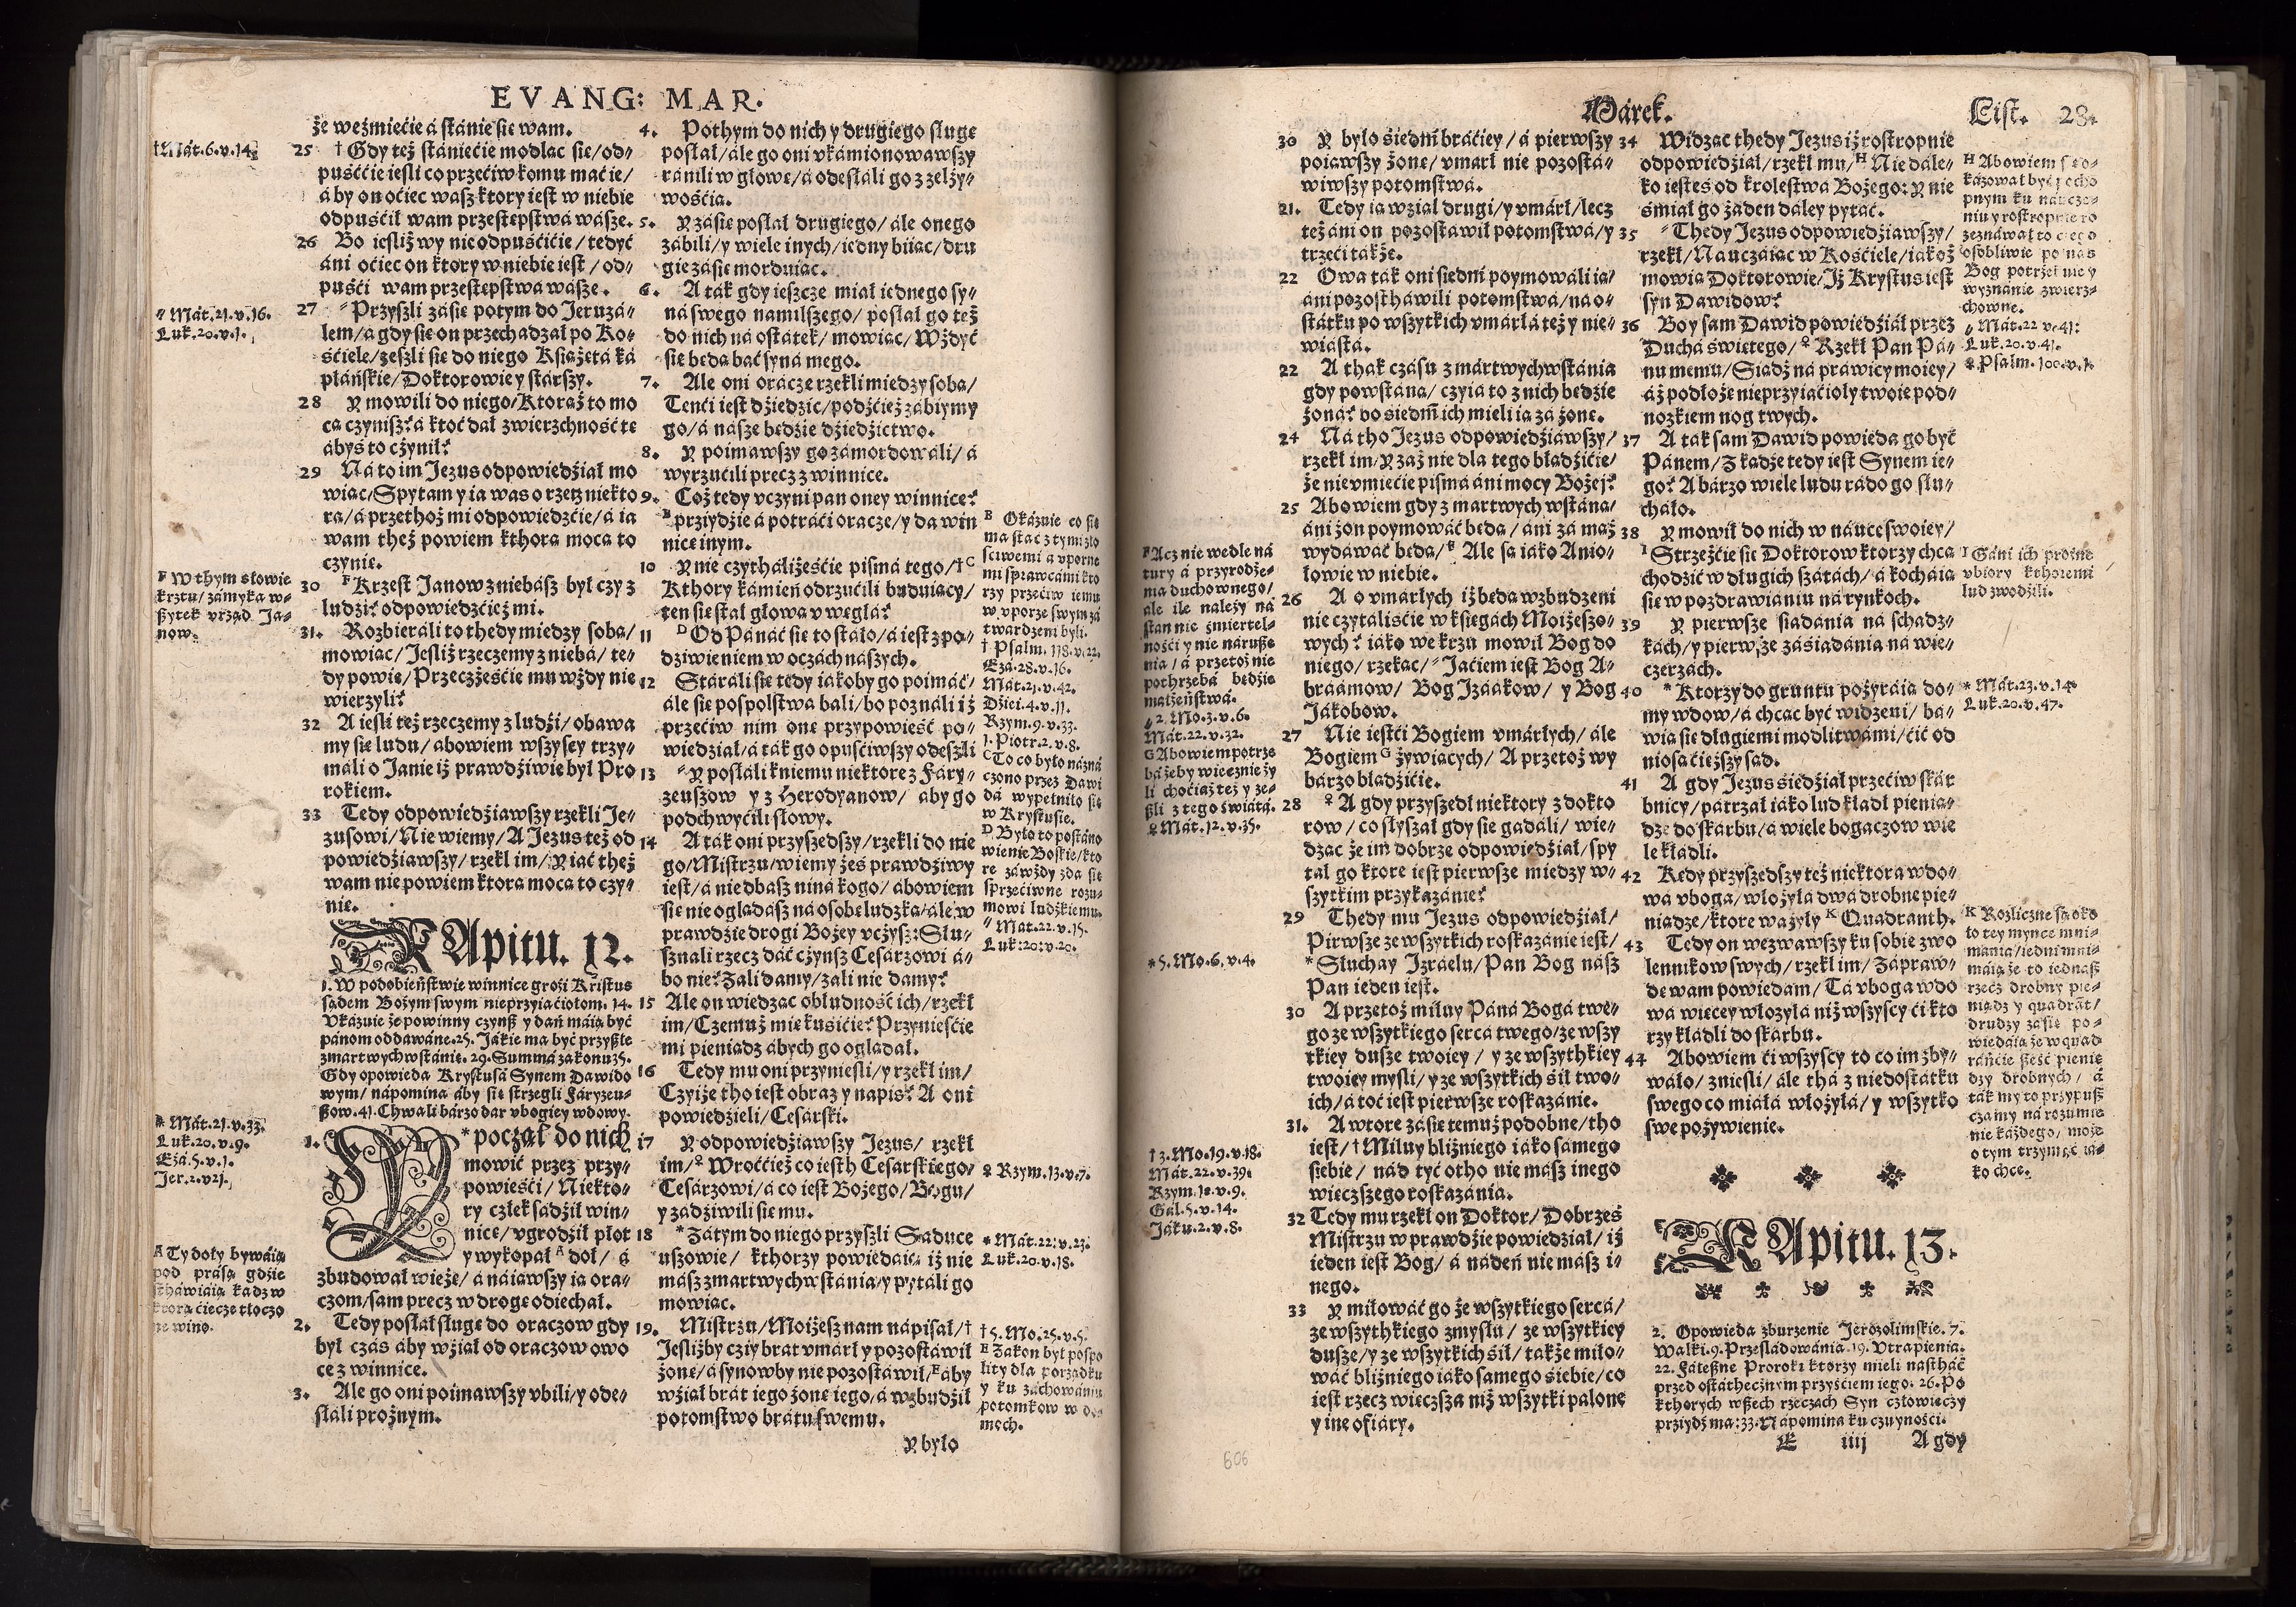 EVANG: MAR.
†Mát.6.v.14.
〃Mát.21.v.16.
Luk.20.v.1.
F W thym słowie
krztu/zámyka w⸗
ßyrek vrząd Ja⸗
now.
* Mát.21.v.33.
Luk.20.v.9.
Ezá.5.v.1.
Jer.2.v21.
A Ty doły bywáią
pod prásą gdzie
że weźmiećie á stánie sie wam.
25 † Gdy też stániećie modląc sie/od⸗
puśććie iesli co przećiw komu maćie/
áby on oćiec wasz ktory iest w niebie
odpuśćił wam przestępstwá wásze.
26 Bo iesliż wy nie odpuśćićie/tedyć
áni oćiec on ktory w niebie iest/od⸗
puśći wam przestępstwá wásze.
27 〃Przyszli zásię potym do Jeruzá⸗
lem/á gdy sie on przechadzał po Ko⸗
śćiele/zeszli sie do niego Książętá ká
płáńskie/Doktorowie y stárszy.
28 Y mowili do niego/Ktorąż to mo
cą czynisz? á ktoć dał zwierzchność tę
ábyś to czynił?
29 Ná to im Jezus odpowiedźiał mo
wiąc/Spytam y ia was o rzecz niekto
rą/á przethoż mi odpowiedzćie/á ia
wam theż powiem kthorą mocą to
czynię.
30 F Krzest Janow z niebász był czy z
ludźi? odpowiedzćież mi.
31. Rozbieráli to thedy miedzy sobą/
mowiąc/Jesliż rzeczemy z niebá/te⸗
dy powie/Przeczżeśćie mu wżdy nie
wierzyli?
32 A iesli też rzeczemy z ludźi/obawa
my sie ludu/ábowiem wszyscy trzy⸗
máli o Janie iż prawdźiwie był Pro
rokiem.
33 Tedy odpowiedźiawszy rzekli Je⸗
zusowi/Nie wiemy/A Jezus też od
powiedźiawszy/rzekł im/Y iać theż
wam nie powiem ktorą mocą to czy⸗
nię.
KApitu. 12.
1. W podobieństwie winnice groźi Kristus
sądem Bożym swym nieprzyiaćiołom. 14.
Vkázuie że powinny czynß y dań máią być
pánom oddawáne. 25. Jákie ma być przyßłe
zmartwychwstánie. 29. Summá zakonu 35.
Gdy opowieda Krystusá Synem Dawido
wym/nápomina áby sie strzegli Fáryzeu⸗
ßow. 41. Chwali bárzo dar vbogiey wdowy.
1. Y *począł do nich
mowić przez przy⸗
powieśći/Niekto⸗
ry człek sádźił win⸗
nicę/vgrodźił płot
y wykopał A doł/á
zbudował wieżę/á náiąwszy ią ora⸗
czom/sam precz w drogę odiechał.
2. Tedy posłał sługę do oraczow gdy
był czás áby wźiął od oraczow owo
ce z winnice.
3. Ale go oni poimawszy vbili/y ode⸗
słáli prożnym.
4. Pothym do nich y drugiego sługę
posłał/ále go oni vkámionowawszy
ránili w głowę/á odesłáli go z zelży⸗
wośćią.
5. Y zásię posłał drugiego/ále onego
zábili/y wiele inych/iedny biiąc/dru
gie zásię morduiąc.
6. A ták gdy ieszcze miał iednego sy⸗
ná swego namilszego/posłał go też
do nich ná ostátek/mowiąc/Wżdyć
sie będą bać syná mego.
7. Ale oni oracze rzekli miedzy sobą/
Tenći iest dźiedzic/podźćież zábiymy
go/á násze będzie dźiedźictwo.
8. Y poimawszy go zámordowáli/á
wyrzućili precz z winnice.
9. Coż tedy vczyni pan oney winnice?
B przyidźie á potráći oracze/y da win
nicę inym.
10 Y nie czytháliżeśćie pismá tego/†C
Kthory kámień odrzućili buduiący/
ten sie stał głową v węglá?
11 D Od Páná ć sie to stáło/á iest z po⸗
dźiwieniem w oczách nászych.
12 Stáráli sie tedy iákoby go poimáć/
ále sie pospolstwá báli/bo poználi iż
przećiw nim onę przypowieść po⸗
wiedźiał/á ták go opuśćiwszy odeszli
13 〃Y posłáli k niemu niektore z Fáry⸗
zeuszow y z Herodyanow/ aby go
podchwyćili słowy.
14 A ták oni przyszedszy/rzekli do nie
go/Mistrzu/wiemy żeś prawdźiwy
iest/á nie dbasz ni ná kogo/ábowiem
sie nie oglądasz ná osobę ludzką/ále w
prawdźie drogi Bożey vczysz: Słu⸗
sznali rzecz dáć czynsz Cesárzowi á⸗
bo nie? Zali damy/zali nie damy?
15 Ale on wiedząc obłudność ich/rzekł
im/Czemuż mię kuśićie? Przynieśćie
mi pieniądz ábych go oglądał.
16 Tedy mu oni przynieśli/y rzekł im/
Czyiże tho iest obraz y napis? A oni
powiedźieli/Cesárski.
17 Y odpowiedźiawszy Jezus/ rzekł
im/♀ Wroććież co iesth Cesarskiego/
Cesárzowi/á co iest Bożego/Bogu/
y zádźiwili sie mu.
18 *Zátym do niego przyszli Sáduce
uszowie/ kthorzy powiedáią iż nie
mász zmartwychwstánia/y pytáli go
mowiąc.
19. Mistrzu/Moiżesz nam nápisał/†
Jesliżby czyi brát vmárł y pozostáwił
żonę/á synow by nie pozostáwił/E áby
wźiął brát iego żonę iego/á wzbudźił
potomstwo brátu swemu.
Y było
B Okázuie co sie
ma stáć z tymi zło
śćiwemi á vporne
mi sprawcámi kto
rzy przećiw iemu
w vporze swym zá
twardzeni byli.
† Psálm. 118.v.22.
Ezá.28.v.16.
Mát.21.v.42.
Dźiei.4.v.11.
Rzym.9.v.33.
1. Piotr.2.v.8.
C To co było názná
czono przez Dawi
dá wypełniło sie
w Krystusie.
D Było to postáno
wienie Boskie/kto
re záwżdy zda sie
sprzećiwne rozu⸗
mowi ludzkiemu.
〃 Mát.22.v.15.
Luk:20:v.20.
♀ Rzym.13.v.7.
* Mát.22:v.23.
Luk.20.v.18.
† 5. Mo.25.v.5.
E Zakon był pospo
lity dla porządku
y ku záchowániu
potomkow w do⸗
moch.
Márek.
List. 28.
F Acz nie wedle ná
tury á przyrodze⸗
nia duchownego/
ále ile należy ná
stan nie śmiertel⸗
nośći y nie náruße
nia/á przetoż nie
pothrzebá będzie
małżeństwá.
〃2. Mo.3.v.6.
Mát.22.v.32.
G Abowiem potrze
bá żeby wiecznie ży
li choćiaż też y ze⸗
ßli z tego świátá.
♀ Mát.12.v.35.
*5. Mo.6.v.4.
†3. Mo.19.v.18.
Mát.22.v.39.
Rzym.10.v.9.
Gál.5.v.14.
Jáku.2.v.8.
606
30 Y było śiedḿ bráćiey/á pierwszy
poiąwszy żonę/vmárł nie pozostá⸗
wiwszy potomstwá.
21. Tedy ią wźiął drugi/y vmárł/lecz
też áni on pozostáwił potomstwá/y
trzeći tákże.
22 Owa ták oni śiedḿ poymowáli ią/
áni pozosthawili potomstwá/ná o⸗
státku po wszytkich vmárłá też y nie⸗
wiástá.
22 A thak czásu zmártwychwstánia
gdy powstáną/czyia to z nich będźie
żoná? bo śiedḿ ich mieli ią zá żonę.
24 Ná tho Jezus odpowiedźiawszy/
rzekł im/Y zaż nie dla tego błądźićie/
że nie vmiećie pismá áni mocy Bożej?
25 Abowiem gdy z martwych wstáną/
áni żon poymowáć będą/áni zá mąż
wydawáć będą/F Ale są iáko Anio⸗
łowie w niebie.
26 A o vmárłych iż będą wzbudzeni
nie czytáliśćie w księgách Moiżeszo⸗
wych? iáko we krzu mowił Bog do
niego/rzekąc/〃Jaćiem iest Bog A⸗
bráámow/ Bog Izáákow/ y Bog
Jákobow.
27 Nie iestći Bogiem vmárłych/ ále
Bogiem G żywiących/ A przetoż wy
bárzo błądźićie.
28 ♀ A gdy przyszedł niektory z dokto
row/co słyszał gdy sie gadáli/wie⸗
dząc że im dobrze odpowiedźiał/spy
tał go ktore iest pierwsze miedzy w⸗
szytkim przykazánie?
29 Thedy mu Jezus odpowiedźiał/
Pirwsze ze wszytkich roskazánie iest/
*Słuchay Izráelu/Pan Bog nász
Pan ieden iest.
30 A przetoż miłuy Páná Bogá twe⸗
go ze wszytkiego sercá twego/ze wszy
tkiey dusze twoiey/y ze wszythkiey
twoiey mysli/y ze wszytkich śił two⸗
ich/á toć iest pierwsze roskazánie.
31. A wtore zásię temuż podobne/tho
iest/† Miłuy bliźniego iáko sámego
siebie/ nád tyć otho nie mász inego
większego roskazánia.
32 Tedy mu rzekł on Doktor/Dobrześ
Mistrzu w prawdźie powiedźiał/iż
ieden iest Bog/á nádeń nie mász i⸗
nego.
33 Y miłowáć go ze wszytkiego sercá/
ze wszythkiego zmysłu/ ze wszytkiey
dusze/y ze wszytkich śił/tákże miło⸗
wáć bliźniego iáko sámego śiebie/co
iest rzecz więtsza niż wszytki palone
y ine ofiáry.
34 Widząc thedy Jezus iż rostropnie
odpowiedźiał/rzekł mu/H Nie dále⸗
ko iestes od krolestwá Bożego: Y nie
śmiał go żaden dáley pytáć.
35 〃Thedy Jezus odpowiedźiawszy/
rzekł/Náuczáiąc w Kośćiele/iákoż
mowią Doktorowie/Iż Krystus iest
syn Dawidow?
36 Bo y sam Dawid powiedźiáł przez
Duchá świętego/♀ Rzekł Pan Pá⸗
nu memu/Śiądź ná práwicy moiey/
áż podłożę nieprzyiaćioły twoie pod⸗
nożkiem nog twych.
37 A ták sam Dawid powieda go być
Pánem/Z kądże tedy iest Synem ie⸗
go? A bárzo wiele ludu rádo go słu⸗
cháło.
38 Y mowił do nich w náuce swoiey/
I Strzeżćie sie Doktorow ktorzy chcą
chodźić w długich szátách/á kocháią
sie w pozdrawianiu ná rynkoch.
39 Y pierwsze siadánia ná schadz⸗
kách/y pierwsze zásiadánia ná wie⸗
czerzách.
40 *Ktorzy do gruntu pożyráią do⸗
my wdow/á chcąc być widzeni/bá⸗
wią sie długiemi modlitwámi/ćić od
niosą ćięższy sąd.
41 A gdy Jezus śiedźiał przećiw skár
bnicy/pátrzał iáko lud kładł pienią⸗
dze do skárbu/á wiele bogaczow wie
le kłádli.
42 Kedy przyszedszy też niektora wdo⸗
wá vboga/włożyłá dwá drobne pie⸗
niądze/ktore ważyły K Quadranth.
43 Tedy on wezwawszy ku sobie zwo
lennikow swych/rzekł im/Zápraw⸗
dę wam powiedam/Tá vboga wdo
wá więcey włożyłá niż wszyscy ći kto
rzy kłádli do skárbu.
44 Abowiem ći wszyscy to co im zby⸗
wáło/znieśli/ále thá z niedostátku
swego co miáłá włożyłá/y wszytko
swe pożywienie.
KApitu. 13.
2. Opowieda zburzenie Jerozolimskie. 7.
Walki. 9. Prześládowánia. 19. Vtrapienia.
22. Fáteßne Proroki ktorzy mieli násthać
przed ostátecznym przyśćiem iego. 26. Po
kthorych wßech rzeczách Syn człowieczy
przyidź ma: 33. Nápomina ku czuynośći.
E iiij A gdy
pnym ku náucze⸗
niu y rostropnie ro
osobliwie po nas
Bog potrzebuie y
wyznánie zwierz⸗
chowne.
〃 Mát.22 v.41:
Luk.20.v.41.
♀ Psalm.100.v.1.
I Gáni ich prożne
vbiory kthoremi
lud zwodźili.
* Mát.23.v.14.
Luk.20.v.47.
K Rozliczne są oko
to tey mynce mni⸗
mánia/iedni mni⸗
máią że to iednáß
rzecz drobny pie⸗
niądz y quadrát/
drudzy zásię po⸗
wiedáią że w quad
ránćie ßeść pienię
dzy drobnych/ á
ták my to przypuß
czamy ná rozumie
nie káżdego/może
o tym trzymáć iá⸗
ko chce.